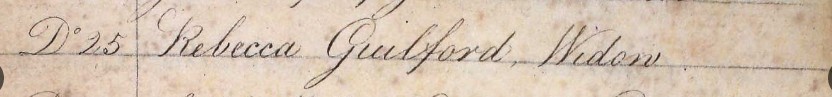 Do 25 Rebecca Guilford, Widow